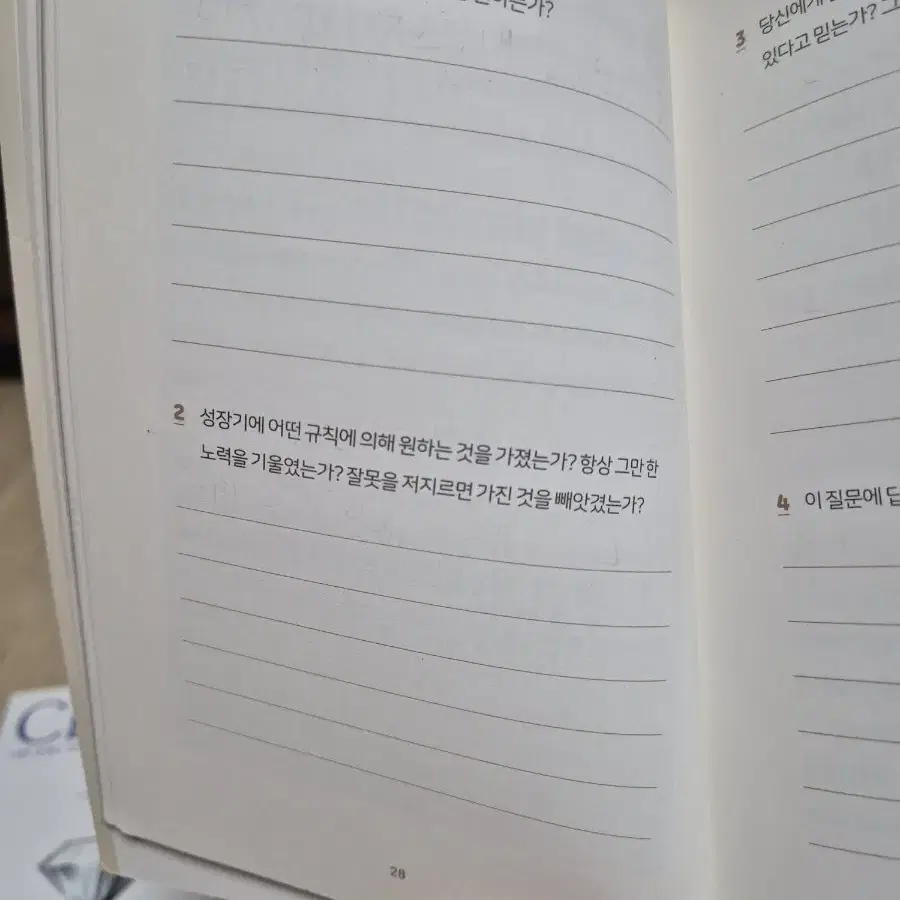 는가?
2 성장기에 어떤 규칙에 의해 원하는 것을 가졌는가? 항상 그만 한
노력을 기울였는가? 잘못을 저지르면 가진 것을 빼앗겼는가?
28
3 당신에게
있다고 믿는가? 그
4 이 질문에 답